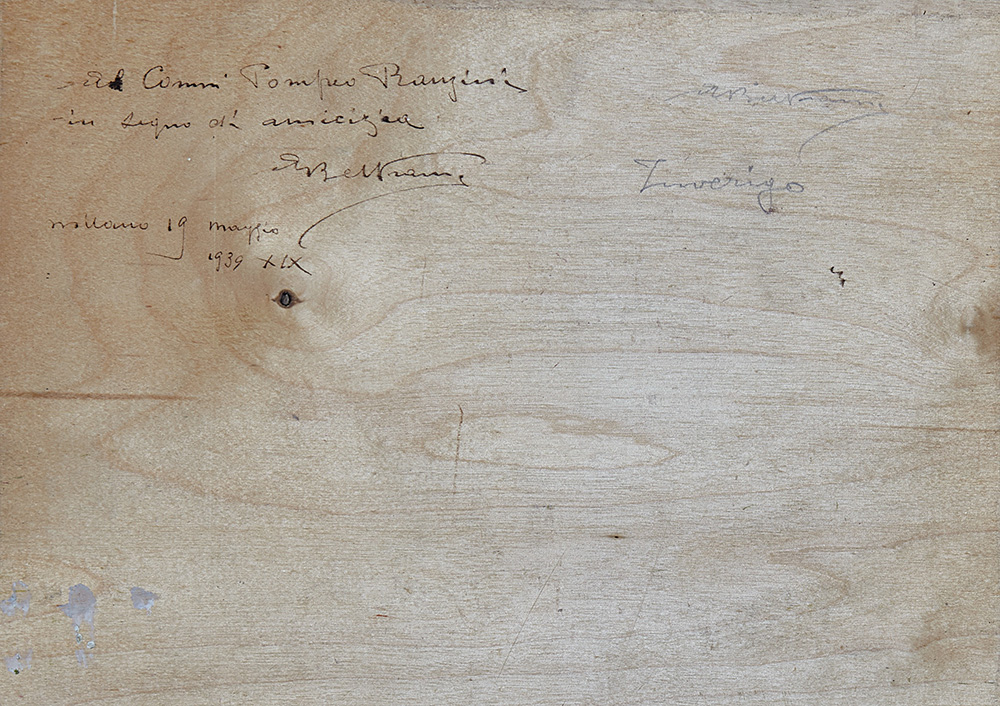 Al Comm Pompeo Ranzini
in segno di amicizia
ABeltrame
Milano 19 maggio
1939 XIX
ABeltrame
Inverigo